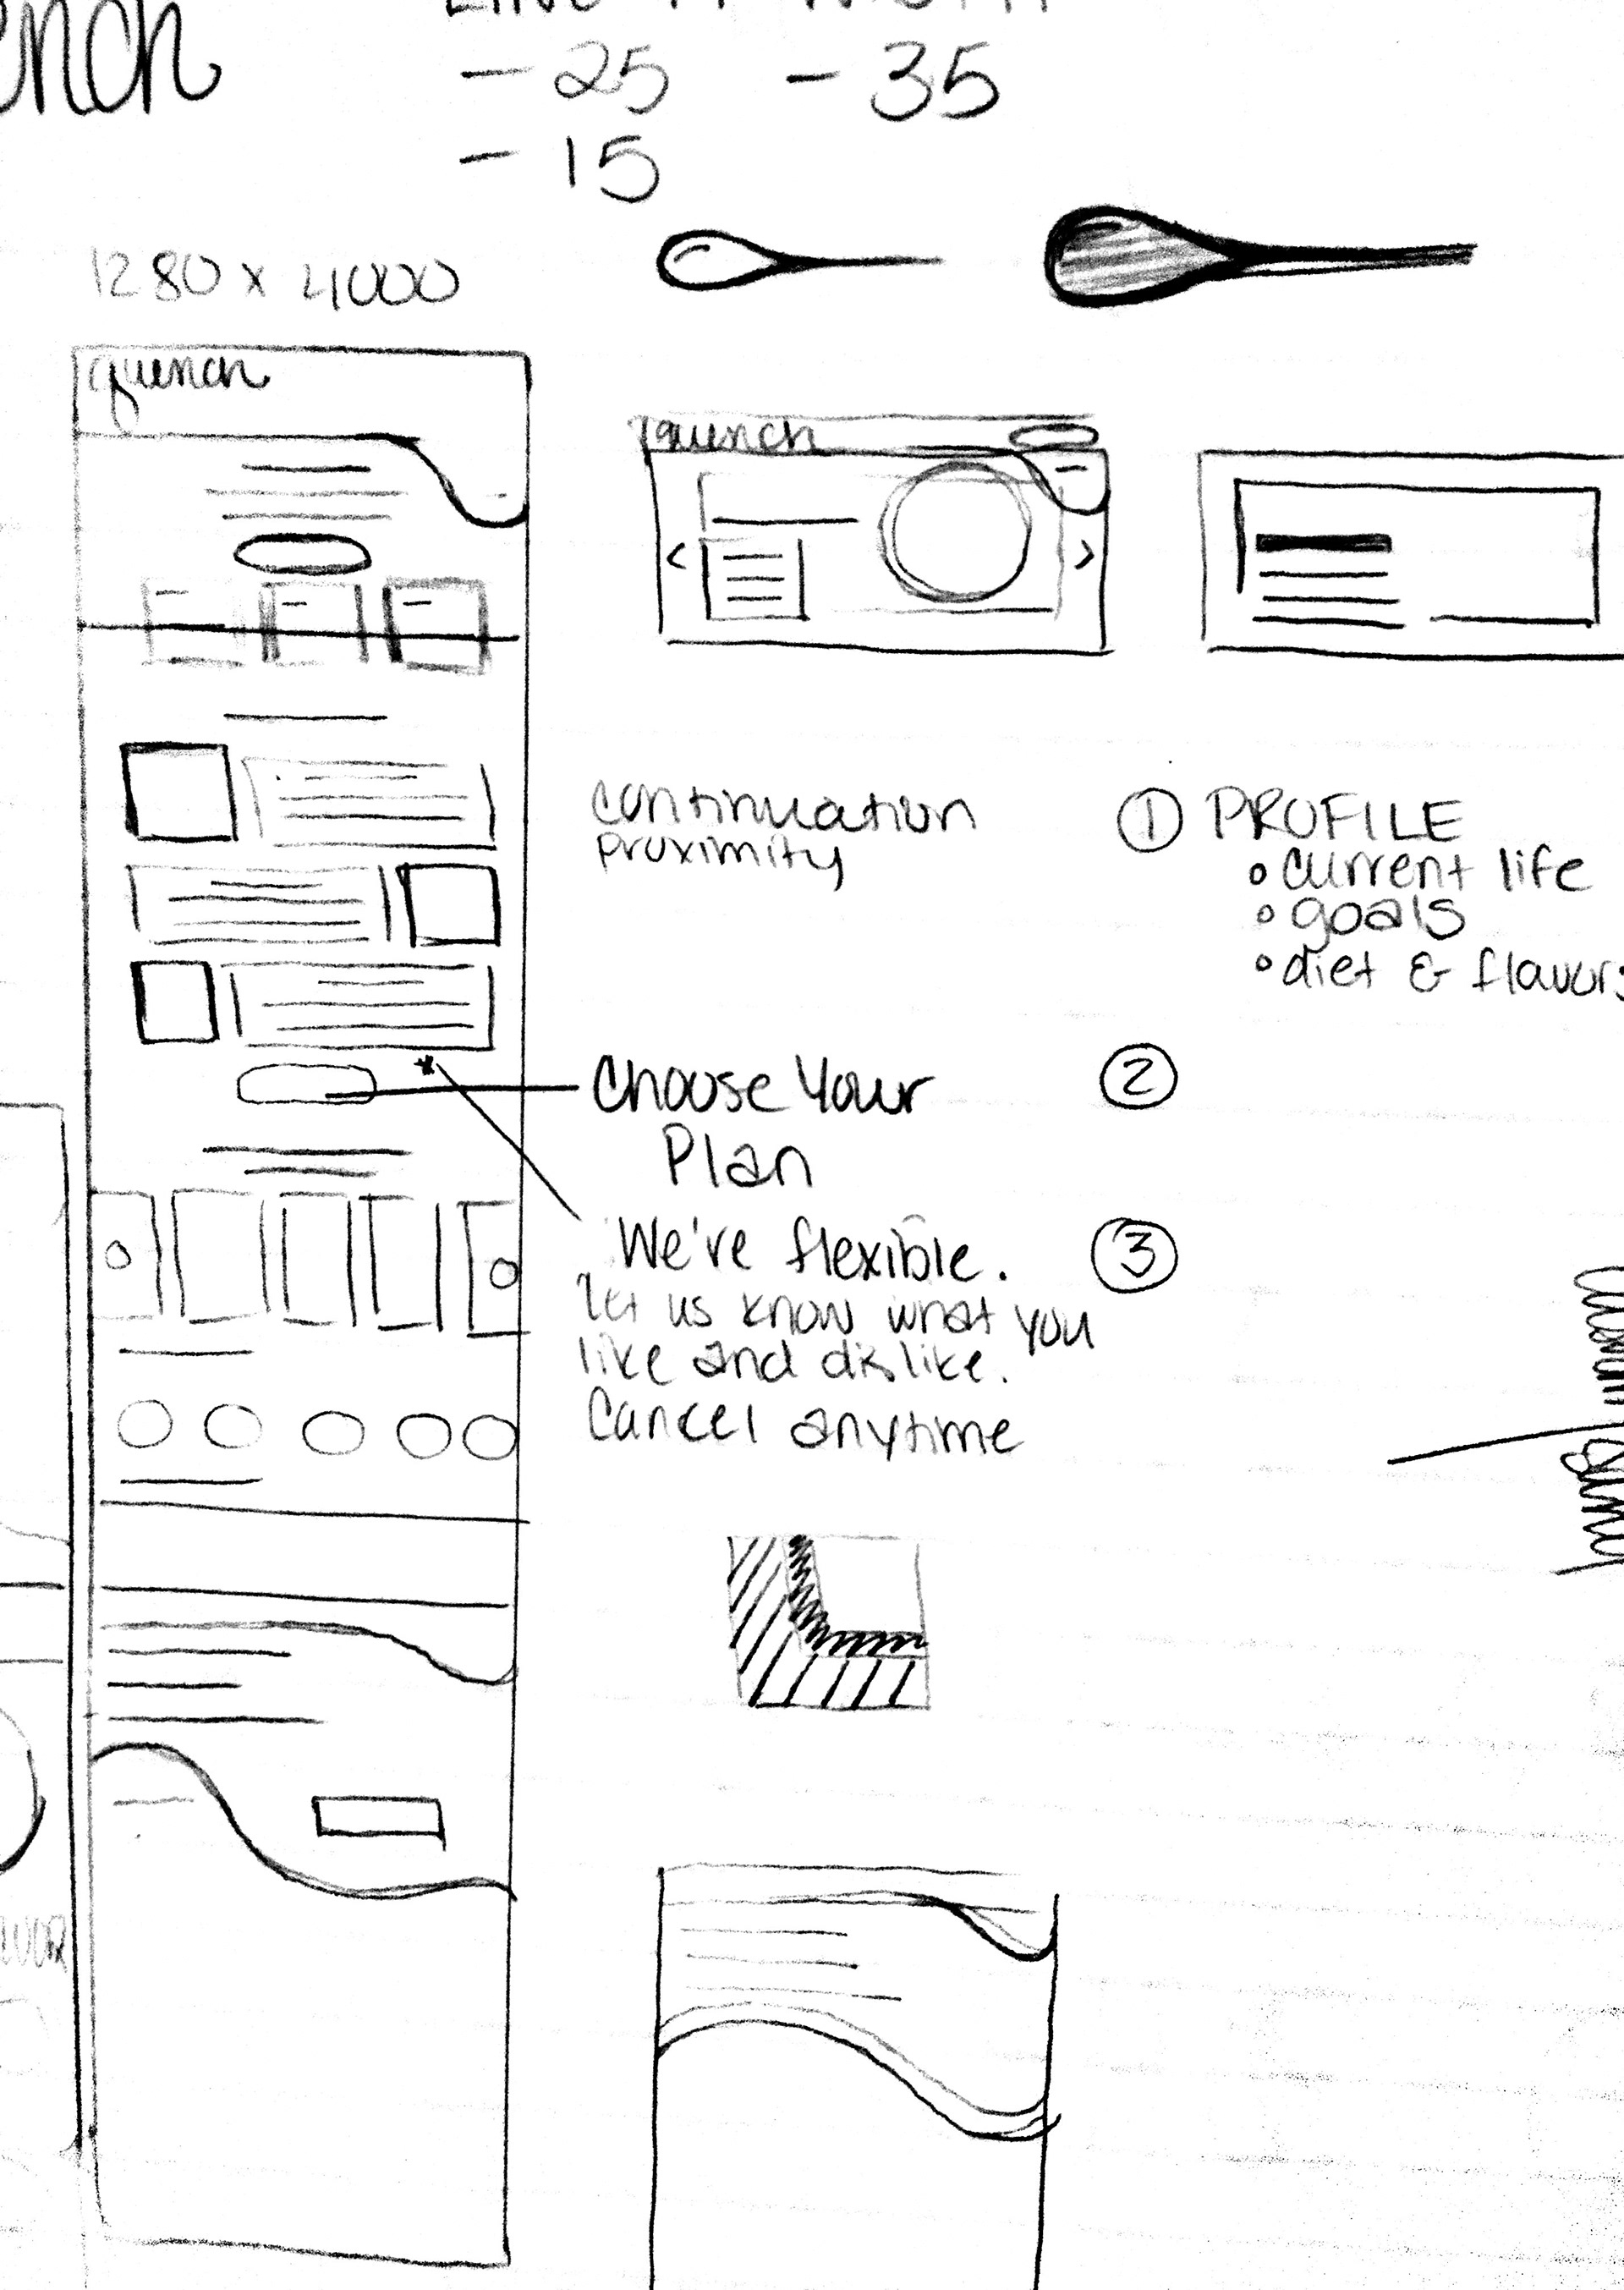 - 25 - 35
- 15
1280 x 4000
quench
quench
continuation
proximity
① PROFILE
• current life
• goals
• diet & flavors
Choose Your
Plan
②
We're flexible.
let us know what you
like and dislike.
Cancel anytime
③